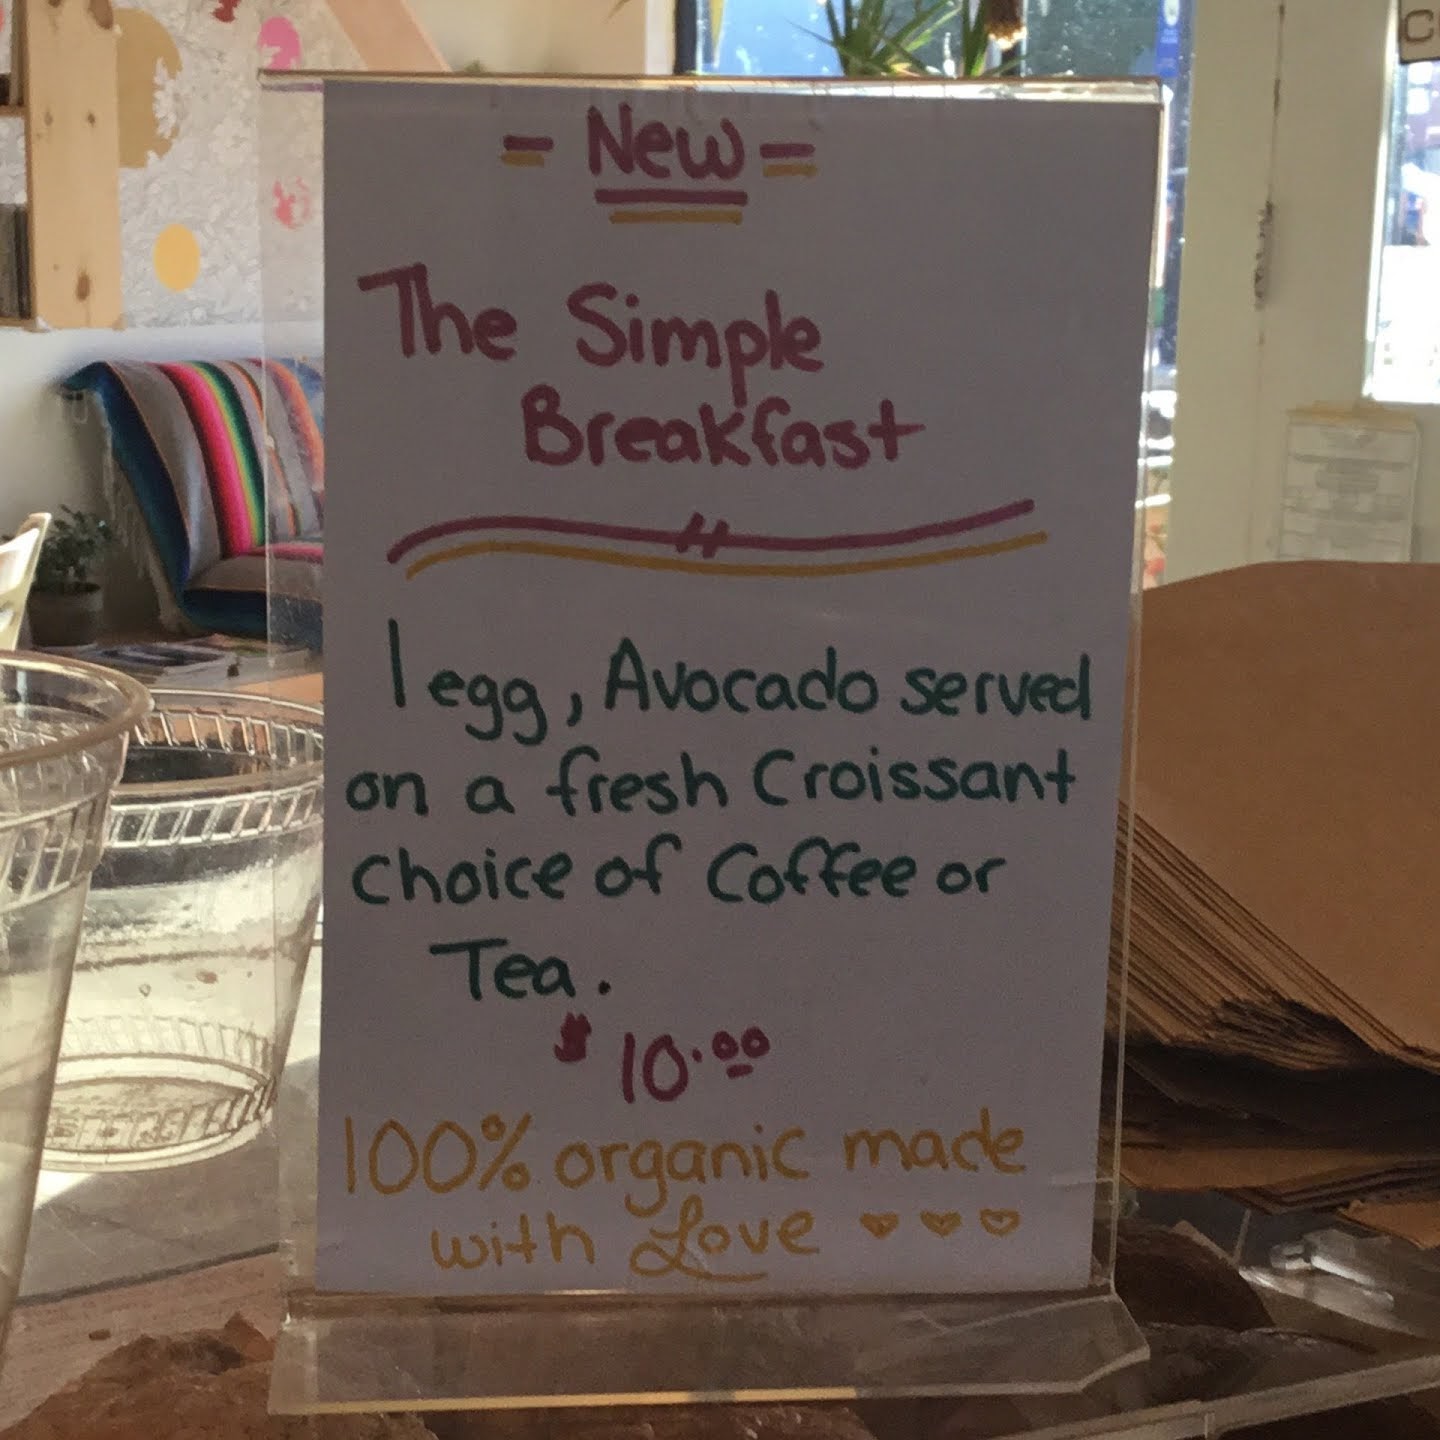 = New =
The Simple
Breakfast
1 egg, Avocado served
on a fresh Croissant
choice of Coffee or
Tea.
$ 10.00
100% organic made
with Love ♥ ♥ ♥